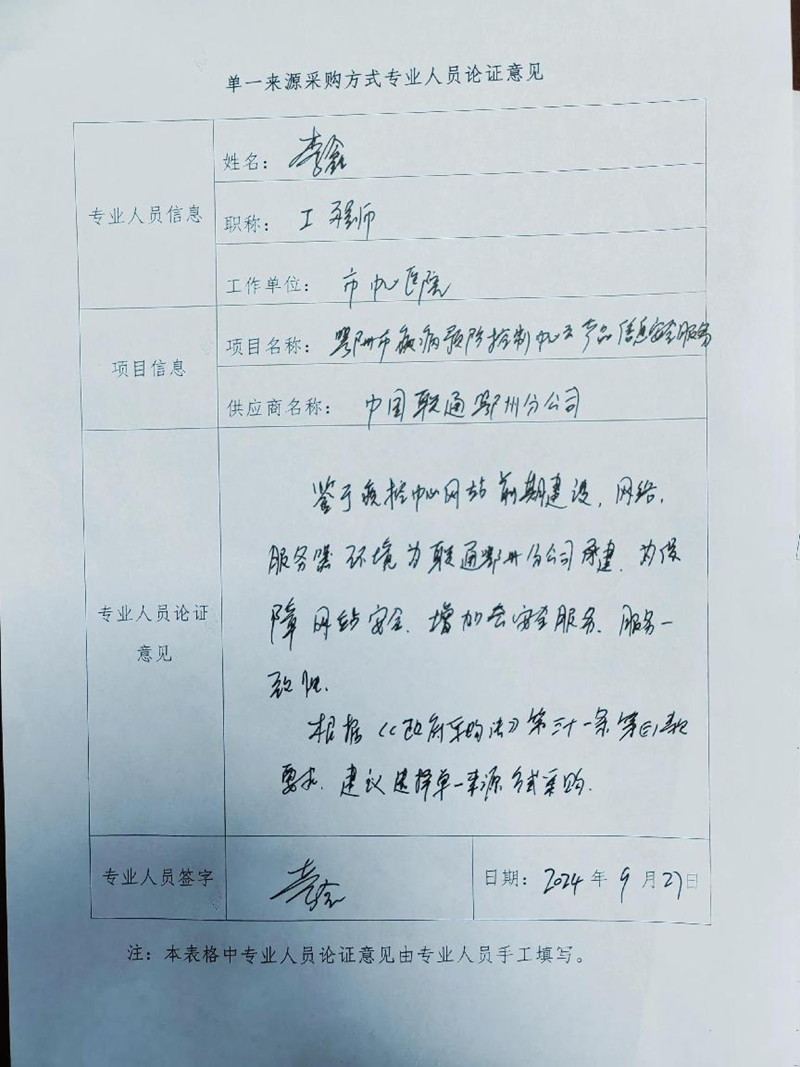 单一来源采购方式专业人员论证意见
专业人员信息
姓名：李鑫
职称：工程师
工作单位：市中心医院
项目信息
项目名称：鄂州市疾病预防控制中心云产品信息安全服务
供应商名称：中国联通鄂州分公司
专业人员论证
意见
鉴于疾控中心网站前期建设，网络，
服务器环境为联通鄂州分公司承建，为保
障网站安全，增加云安全服务、服务一
致性.
根据《政府采购法》第三十一条第(三)款
要求，建议选择单一来源方式采购.
专业人员签字
日期：2024年9月27日
注：本表格中专业人员论证意见由专业人员手工填写。